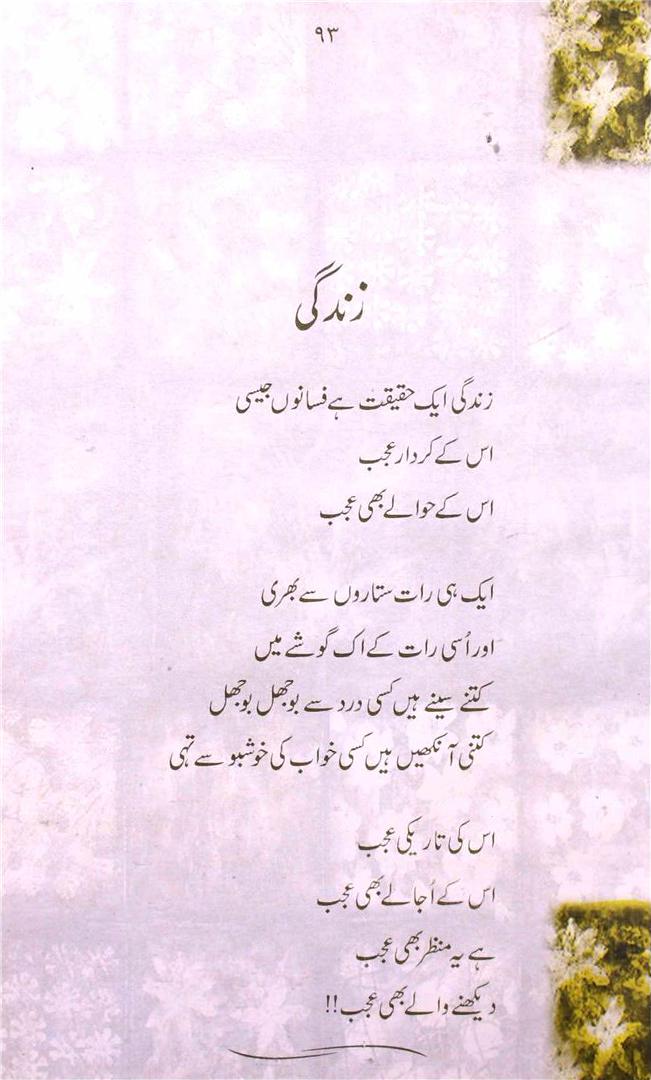 ۹۳
زندگی
زندگی ایک حقیقت ہے فسانوں جیسی
اس کے کردار عجب
اس کے حوالے بھی عجب
ایک ہی رات ستاروں سے بھری
اور اُسی رات کے اک گوشے میں
کتنے سینے ہیں کسی درد سے بوجھل بوجھل
کتنی آنکھیں ہیں کسی خواب کی خوشبو سے تہی
اس کی تاریکی عجب
اس کے اُجالے بھی عجب
ہے یہ منظر بھی عجب
دیکھنے والے بھی عجب!!